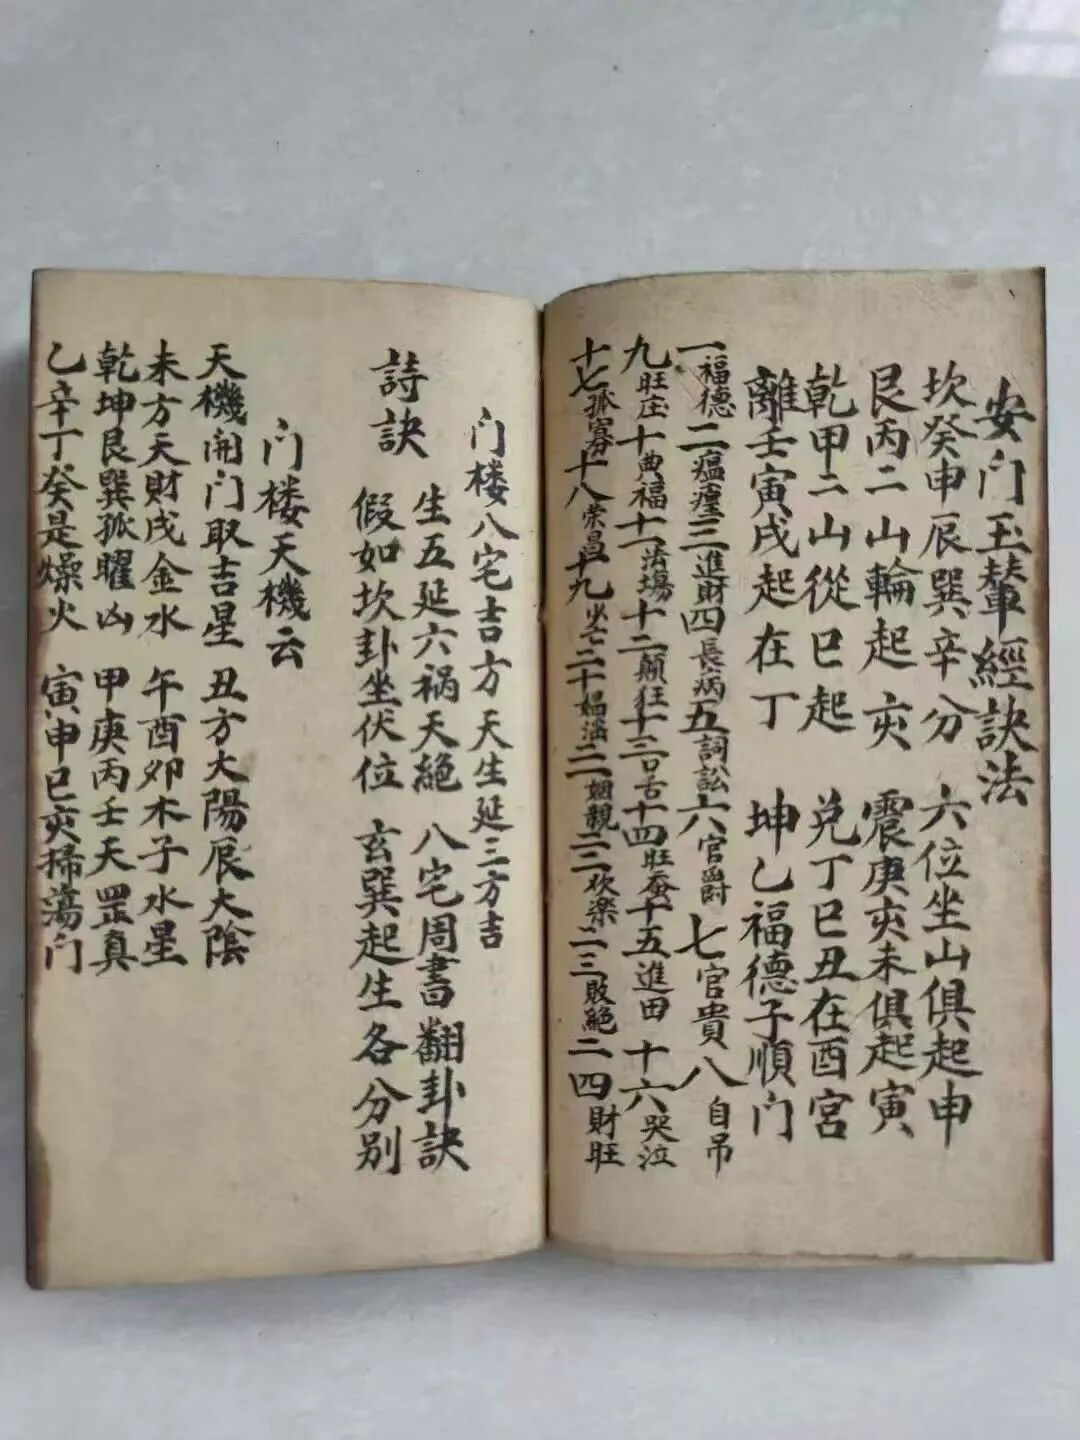 安门玉輦經訣法
坎癸申辰巽辛分 六位坐山俱起申
艮丙二山輪起亥 震庚亥未俱起寅
乾甲二山從巳起 兑丁巳丑在酉宮
離壬寅戌起在丁 坤乙福德子順门
一福德二瘟瘟三進財四長病五詞訟六官爵七官貴八自吊
九旺庄十典福十一法場十二顛狂十三口舌十四旺蚕十五進田十六哭泣
十七孤寡十八荣昌十九少亡二十娼淫二一姻親二二欢楽二三敗絕二四財旺
门楼八宅吉方天生延三方吉
詩訣 生五延六祸天絕 八宅周書翻卦訣
假如坎卦坐伏位 玄巽起生各分别
门楼天機云
天機開门取吉星 丑方大陽辰大陰
未方天財戌金水 午酉卯木子水星
乾坤艮巽孤曜凶 甲庚丙壬天罡真
乙辛丁癸是燥火 寅申巳亥掃蕩门